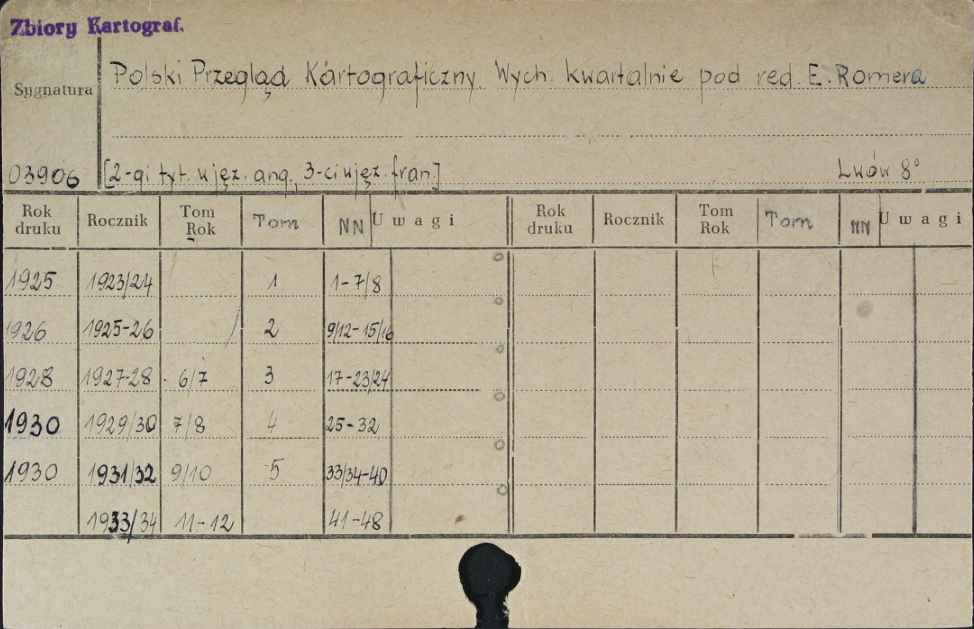 Zbiory Kartograf.
Sygnatura
Polski Przegląd Kartograficzny. Wych. kwartalnie pod red. E. Romera
03906 [2-gi tyt. w jęz. ang., 3-ci w jęz. fran.] Lwów 8°
Rok druku Rocznik Tom Rok Tom NN Uwagi Rok druku Rocznik Tom Rok Tom NN Uwagi
1925 1923/24 1 1-7/8
1926 1925-26 2 9/12-15/16
1928 1927-28 6/7 3 17-23/24
1930 1929/30 7/8 4 25-32
1930 1931/32 9/10 5 33/34-40
1933/34 11-12 41-48